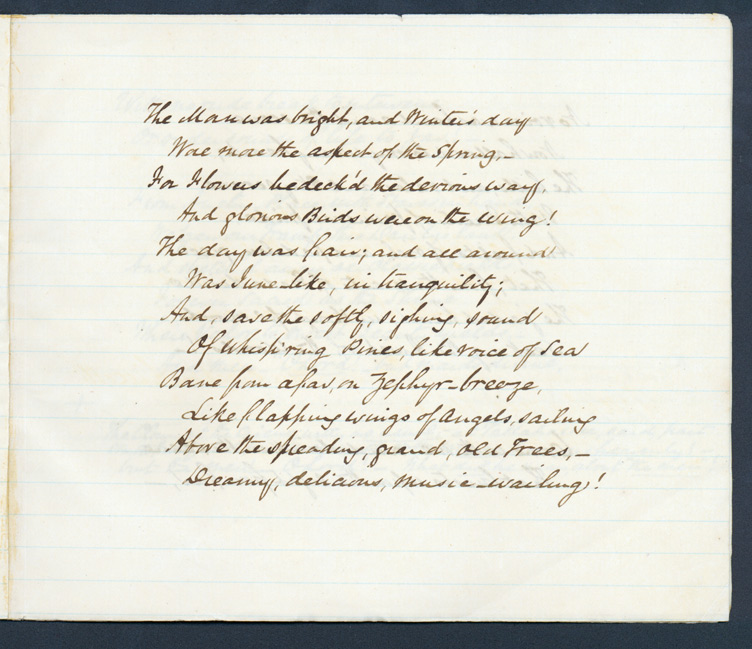 The Morn was bright, and Winter's day
Wore more the aspect of the Spring,—
For Flowers bedeck'd the devious way,
And glorious Birds were on the wing!
The day was fair; and all around
Was June-like, in tranquility;
And, save the softly, sighing, sound
Of whisp'ring Pines, like voice of Sea
Bore from afar, on Zephyr-breeze,
Like flapping wings of Angels, sailing
Above the spreading, grand, old Trees,—
Dreamy, delicious, music-wailing!